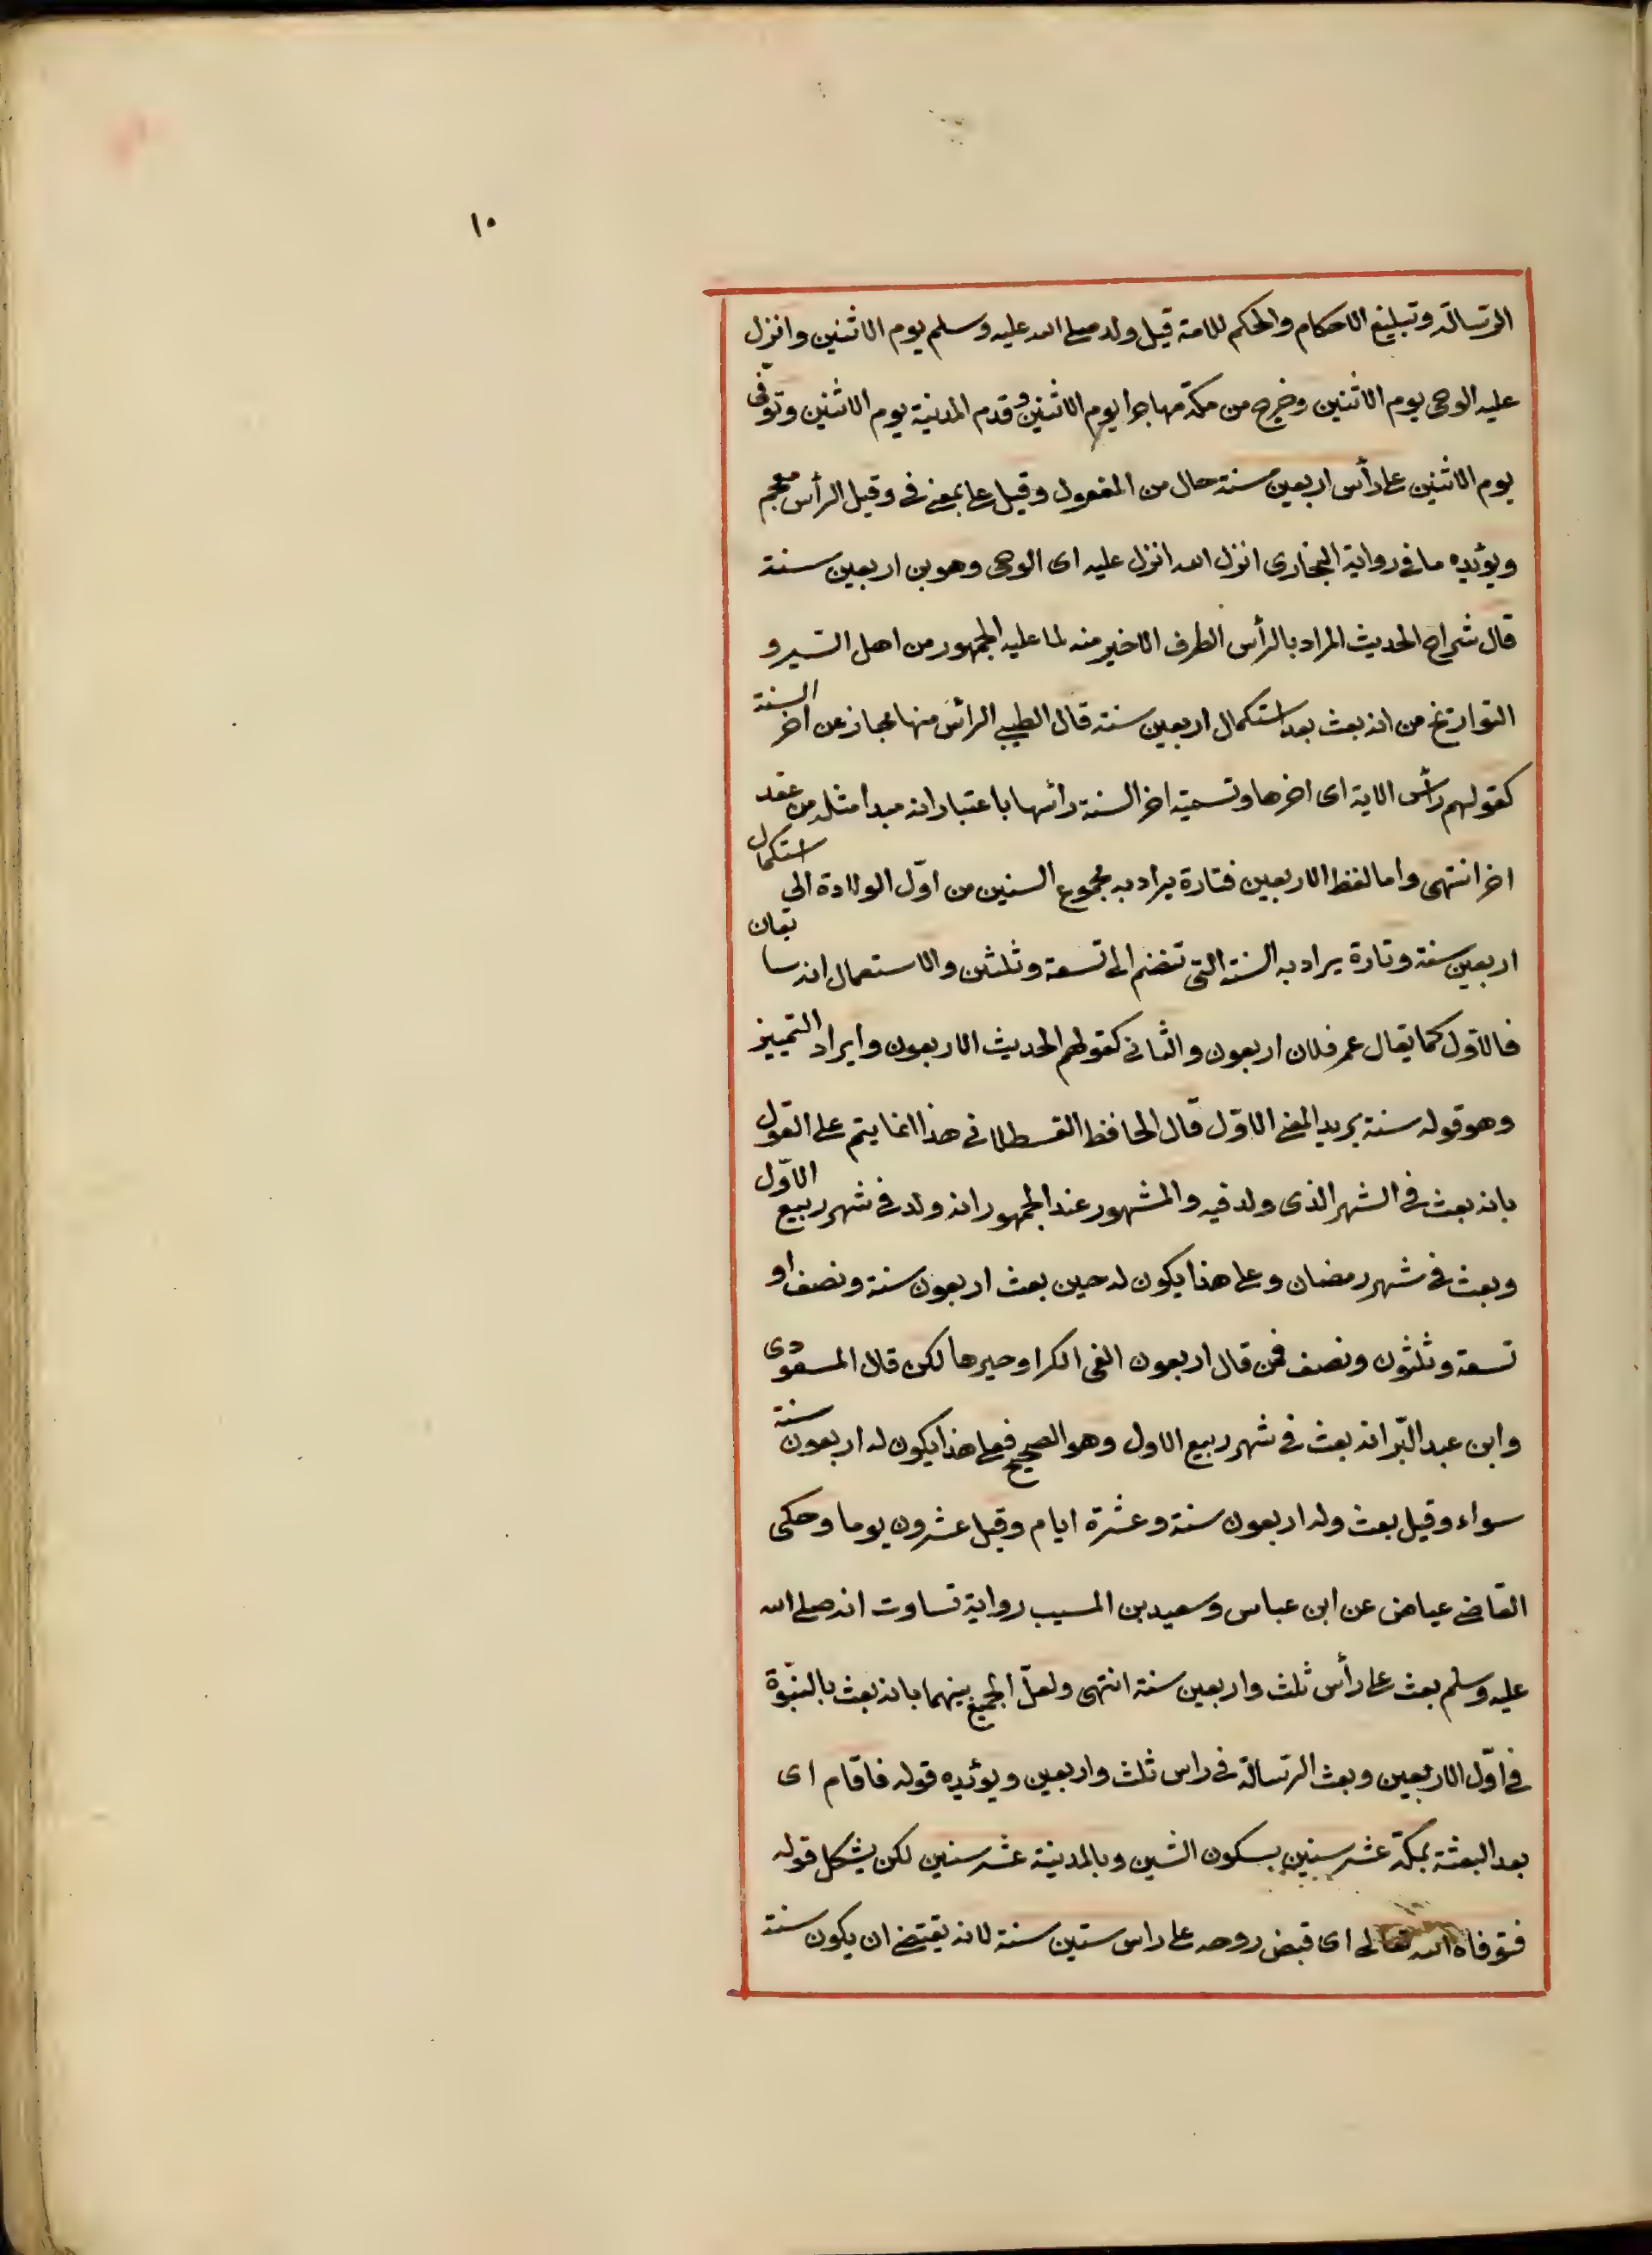 ١٠
الرّسالة وتبليغ الاحكام والحكم للامة قيل ولد صلى الله عليه وسلم يوم الاثنين وانزل
عليه الوحى يوم الاثنين وخرج من مكة مهاجرا يوم الاثنين وقدم المدينة يوم الاثنين وتوفّى
يوم الاثنين على رأس اربعين سنة حال من المفعول وقيل على بمعنى فى وقيل الرأس مقحم
ويؤيده ما فى رواية البخارى انزل الله انزل عليه اى الوحى وهو بن اربعين سنة
قال شراح الحديث المراد بالرأس الطرف الاخير منه لما عليه الجمهور من اهل السّير و
التواريخ من انه بعث بعد استكمال اربعين سنة قال الطيبى الرأس منها مجاز عن اخر السنة
كقولهم رأس الاية اى اخرها وتسمية اخر السنة رائسها باعتبار انه مبدا مثله من عقد
اخر انتهى واما لفظ الاربعين فتارة يراد به مجموع السنين من اوّل الولادة الى استكمال
اربعين سنة وتارة يراد به السنة التى تنضم الى تسعة وثلثين والاستعمال ان سا يقان
فالاوّل كما يقال عمر فلان اربعون والثانى كقولهم الحديث الاربعون وايراد التمييز
وهو قوله سنة يريد المعنى الاوّل قال الحافظ القسطلانى هذا انما يتم على القول
بانه بعث فى الشهر الذى ولد فيه والمشهور عند الجمهور انه ولد فى شهر ربيع الاوّل
وبعث فى شهر رمضان وعلى هذا يكون له حين بعث اربعون سنة ونصف او
تسعة وثلثون ونصف فمن قال اربعون الغى الكر او جبرها لكن قال المسعودى
وابن عبد البّر انه بعث فى شهر ربيع الاول وهو الصحيح فعلى هذا يكون له اربعون سنة
سواء وقيل بعث وله اربعون سنة وعشرة ايام وقيل عشرون يوما وحكى
القاضى عياض عن ابن عباس وسعيد بن المسيب رواية تساوت انه صلى الله
عليه وسلم بعث على رأس ثلث واربعين سنة انتهى ولعلّ الجمع بينهما بانه بعث بالنبّوة
فى اوّل الاربعين وبعث الرّسالة فى راس ثلث واربعين ويؤيده قوله فاقام اى
بعد البعثة بمكّة عشر سنين بسكون الشين وبالمدينة عشر سنين لكن يشكل قوله
فتوفاه الله تعالى اى قبض روحه على راس ستين سنة لانه يقتضى ان يكون سنة